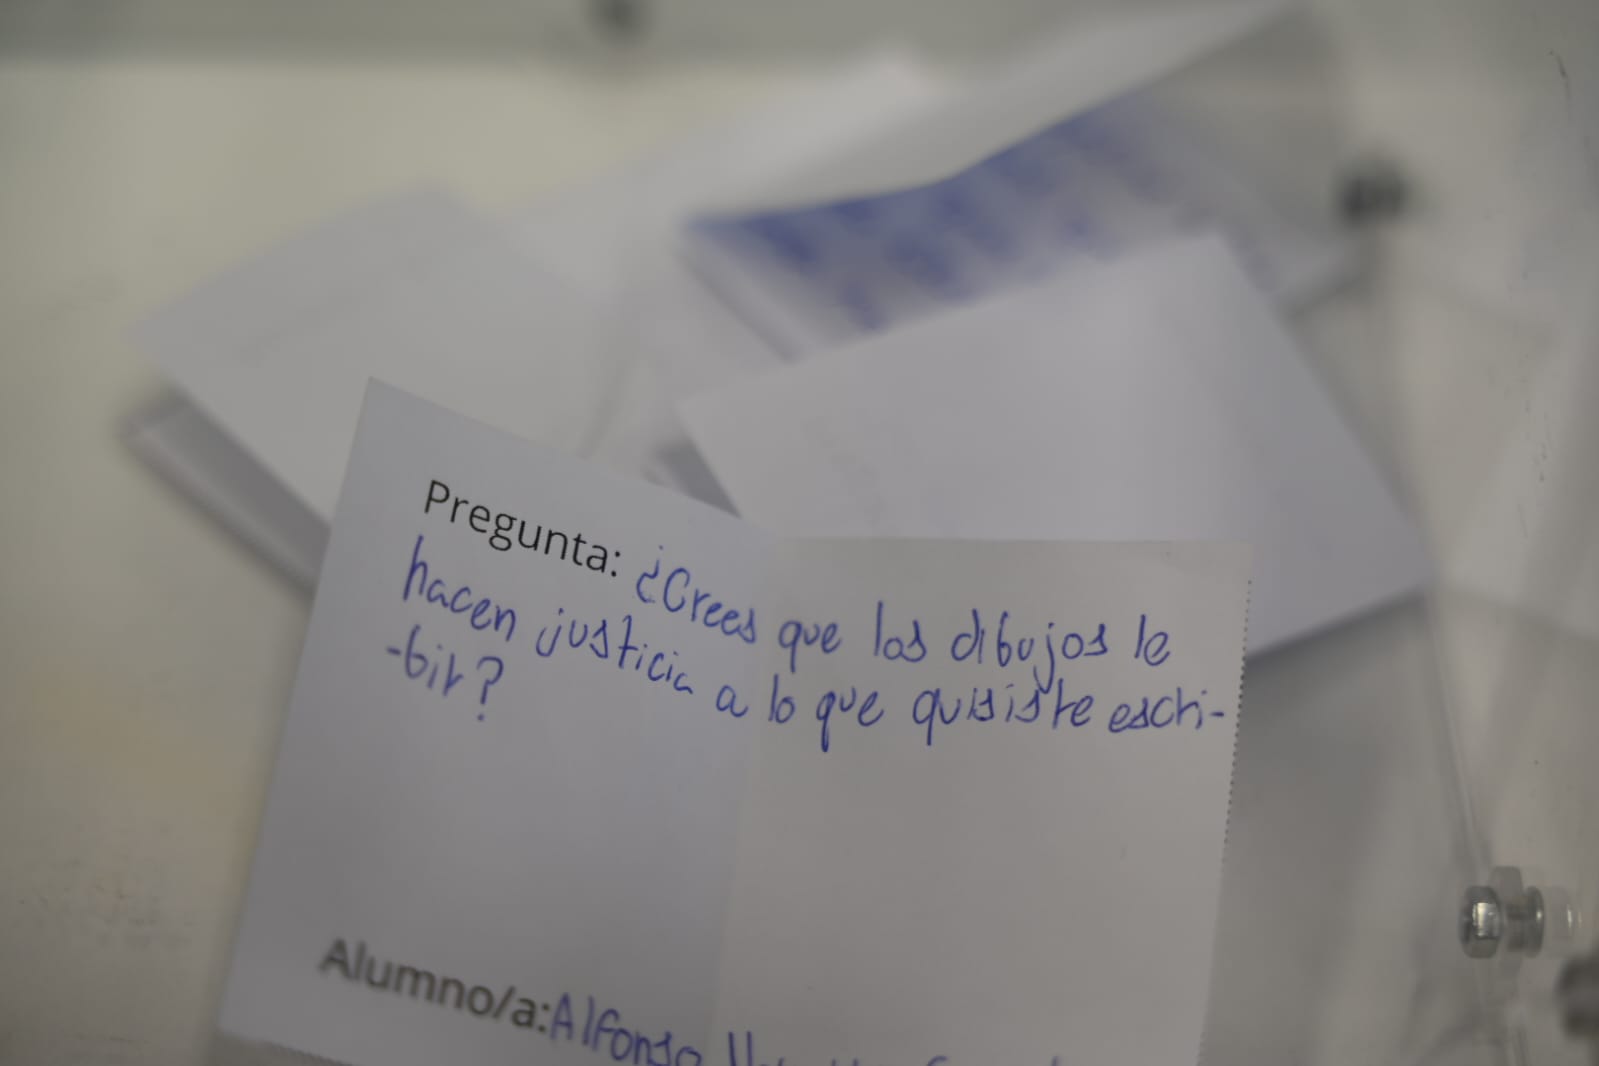 Pregunta: ¿Crees que los dibujos le
hacen justicia a lo que quisiste escri-
-bir?
Alumno/a: Alfonso